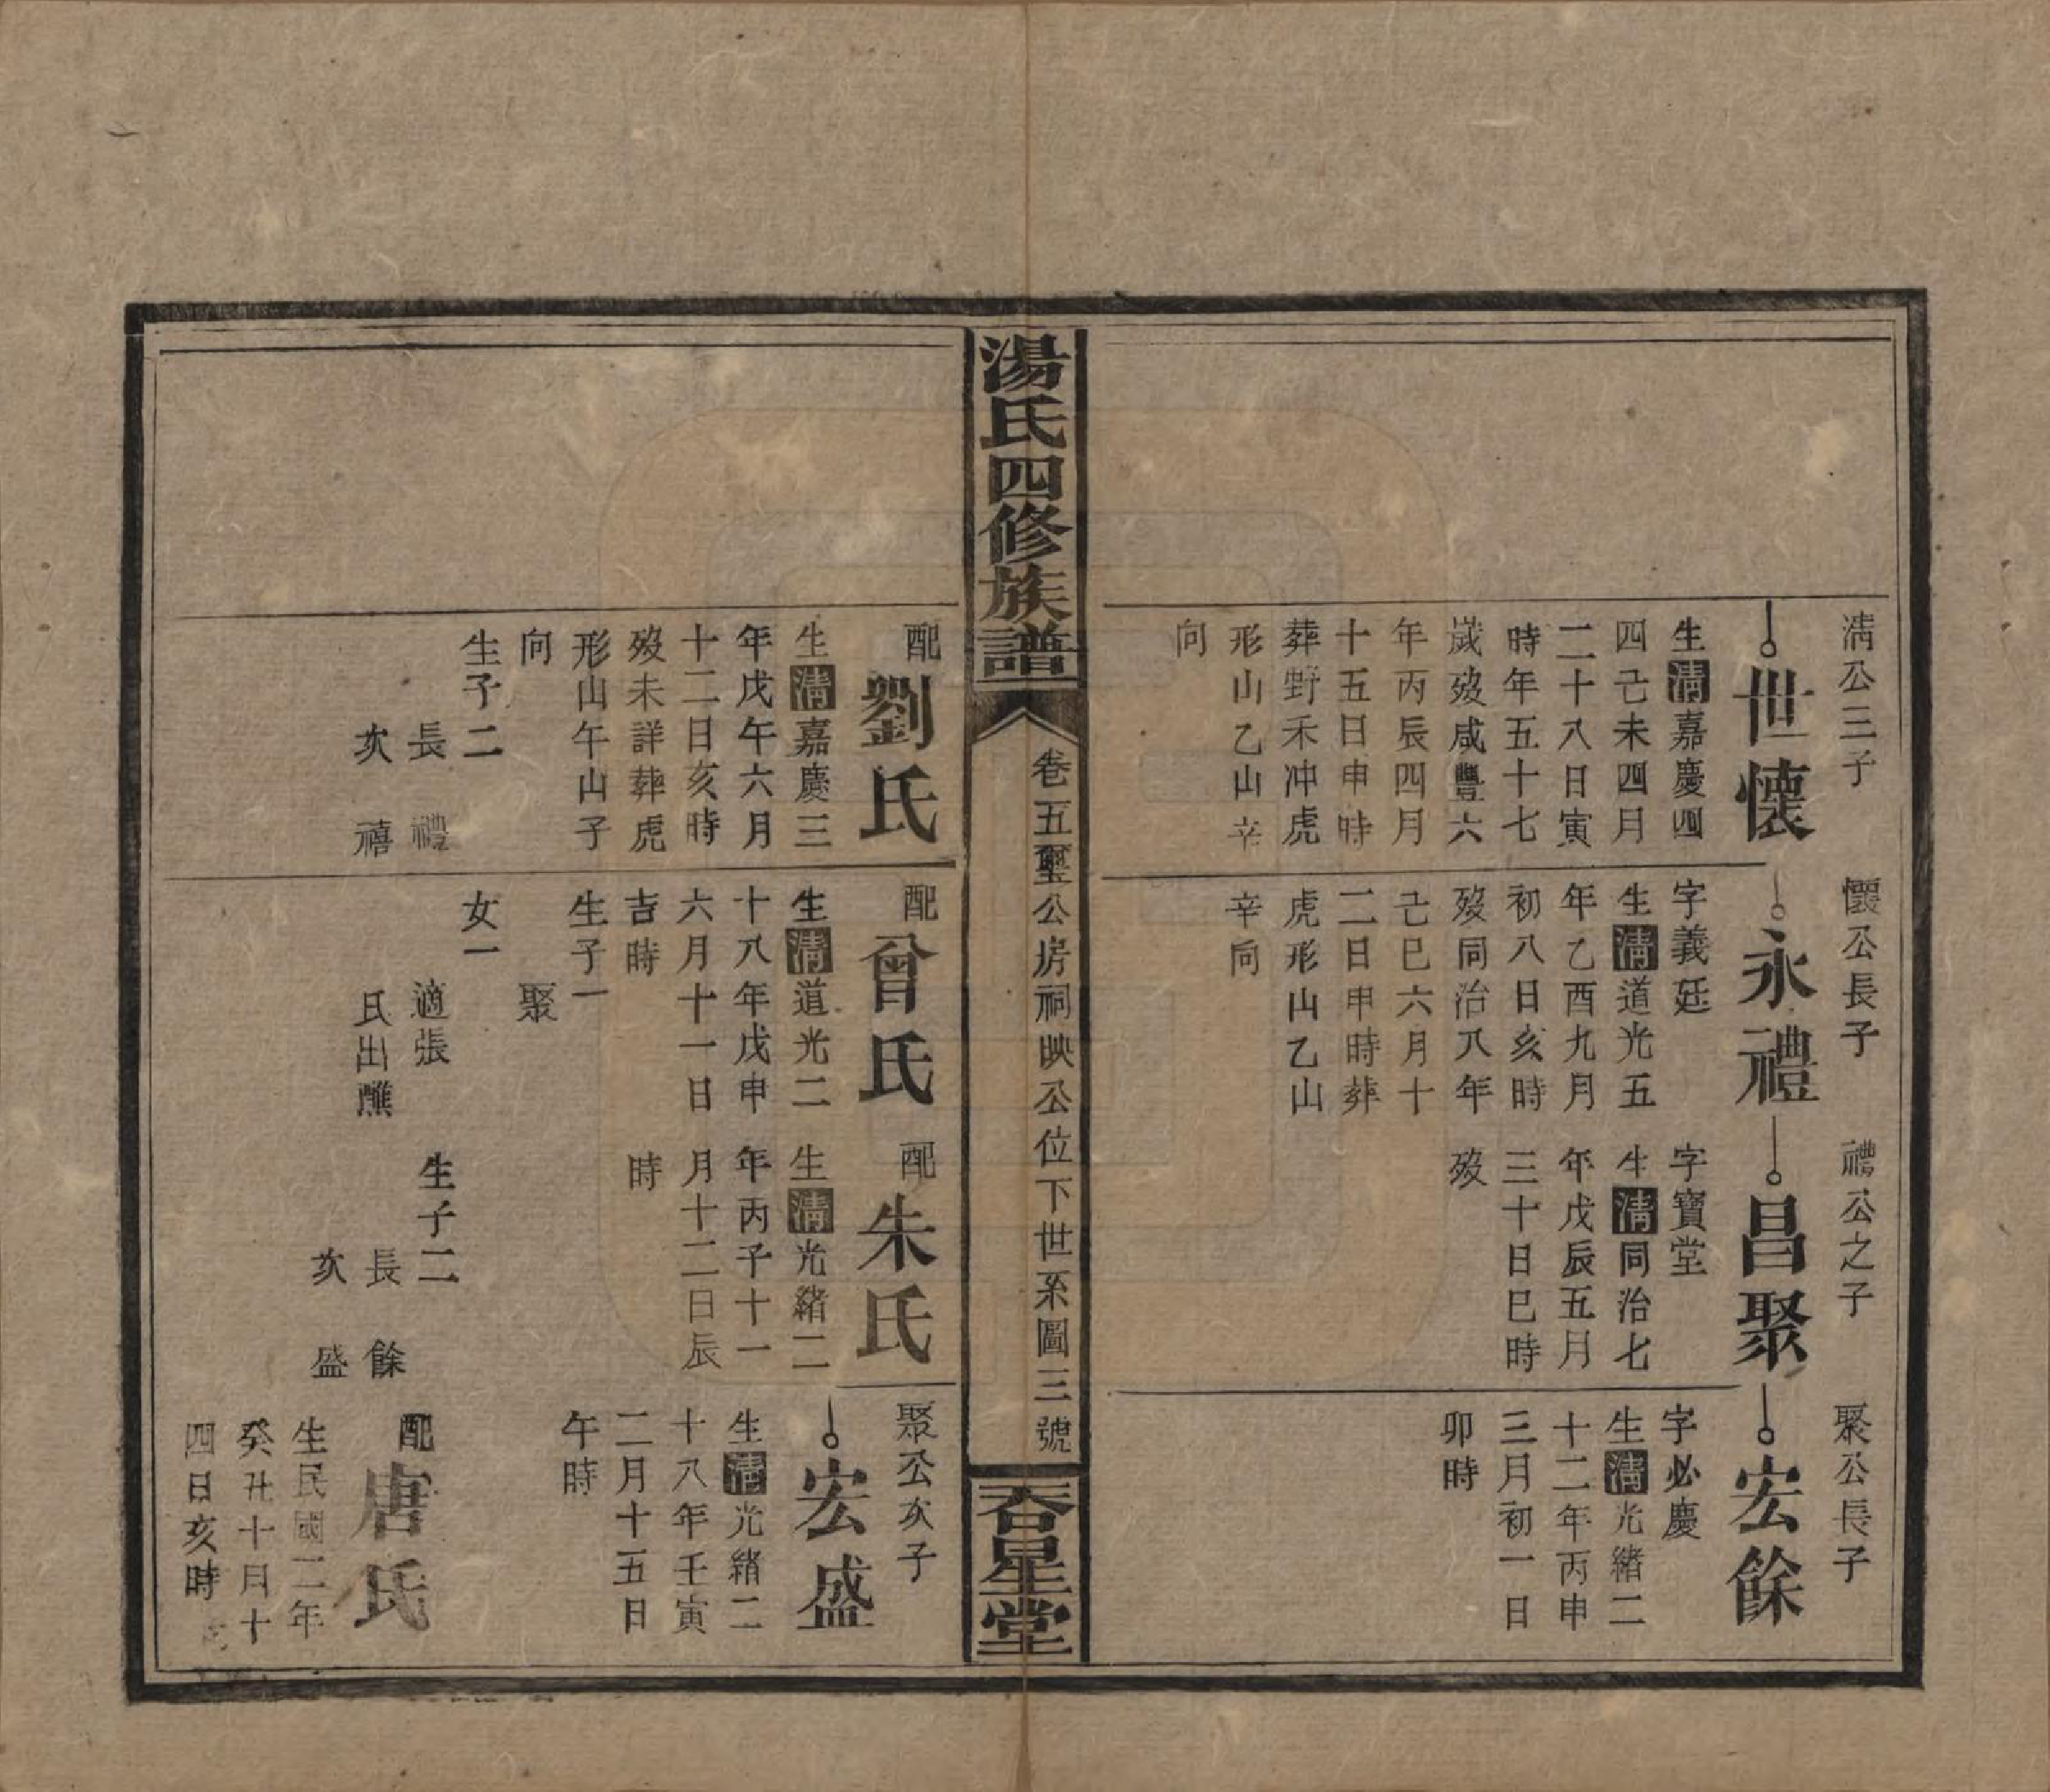 清公三子
世懷
生清嘉慶四
四己未四月
二十八日寅
時年五十七
歲歿咸豐六
年丙辰四月
十五日申時
葬野禾冲虎
形山乙山辛
向
懷公長子
永禮
字義廷
生清道光五
年乙酉九月
初八日亥時
歿同治八年
己巳六月十
二日申時葬
虎形山乙山
辛向
禮公之子
昌聚
字寶堂
生清同治七
年戊辰五月
三十日巳時
歿
聚公長子
宏餘
字必慶
生清光緒二
十二年丙申
三月初一日
卯時
湯氏四修族譜
卷五璽公房祠映公位下世系圖三號
吞星堂
配劉氏
生清嘉慶三
年戊午六月
十二日亥時
歿未詳葬虎
形山午山子
向
生子二
長禮
次禧
配曾氏
生清道光二
十八年戊申
六月十一日
吉時
生子一
聚
女一
適張
氏出醮
配朱氏
生清光緒二
年丙子十一
月十二日辰
時
生子二
長餘
次盛
聚公次子
宏盛
生清光緒二
十八年壬寅
二月十五日
午時
配唐氏
生民國二年
癸丑十月十
四日亥時